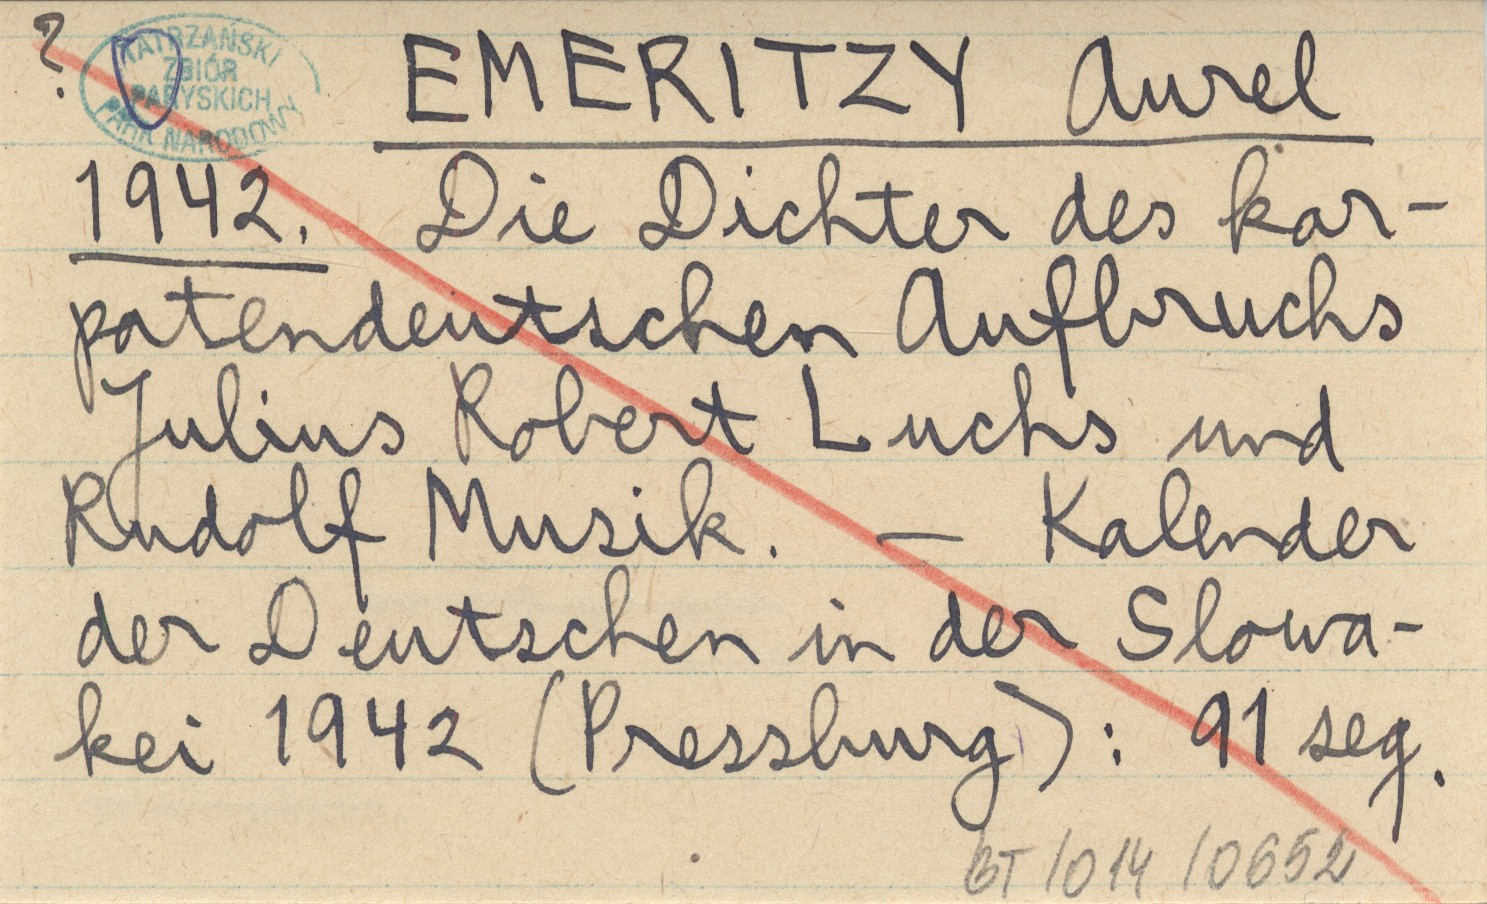 ?
TATRZAŃSKI
ZBIÓR
PARYSKICH
PARK NARODOWY
EMERITZY Aurel
1942. Die Dichter des kar-
patendeutschen Aufbruchs
Julius Robert Luchs und
Rudolf Musik. — Kalender
der Deutschen in der Slowa-
kei 1942 (Pressburg): 91 seq.
BT/014/0652